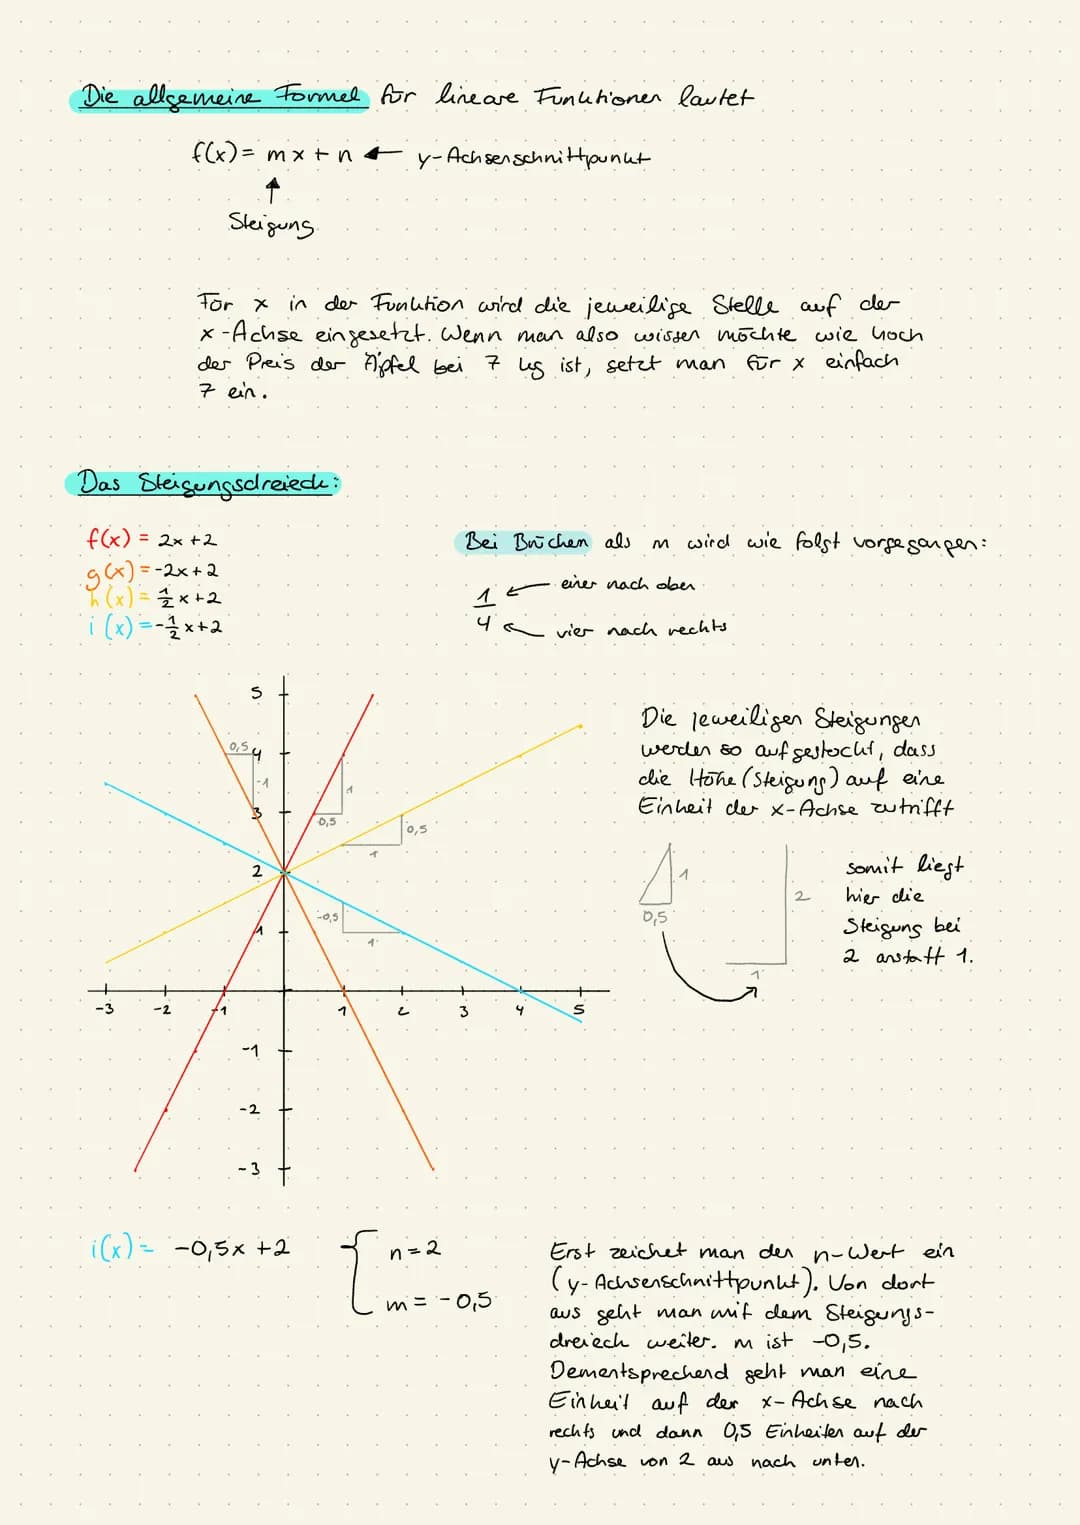 Die allgemeine Formel für lineare Funktionen lautet
f(x) = mx + n ← y-Achsenschnittpunkt
↑
Steigung
Für x in der Funktion wird die jeweilige Stelle auf der
x-Achse eingesetzt. Wenn man also wissen möchte wie hoch
der Preis der Äpfel bei 7 kg ist, setzt man für x einfach
7 ein.
Das Steigungsdreieck:
f(x) = 2x +2
g(x) = -2x + 2
h(x) = 1/2 x +2
i(x) = -1/2 x +2
Bei Brüchen als m wird wie folgt vorgegangen:
1 ← einer nach oben
4 ← vier nach rechts
5
0,5 4
-1 1
3 0,5 0,5
1
2
-0,5
1 1
-3 -2 -1 1 2 3 4 5
-1
-2
-3
Die jeweiligen Steigungen
werden so aufgestockt, dass
die Höhe (Steigung) auf eine
Einheit der x-Achse zutrifft
1
0,5
2
1
somit liegt
hier die
Steigung bei
2 anstatt 1.
i(x) = -0,5x +2
n = 2
m = -0,5
Erst zeichet man den n-Wert ein
(y-Achsenschnittpunkt). Von dort
aus geht man mit dem Steigungs-
dreieck weiter. m ist -0,5.
Dementsprechend geht man eine
Einheit auf der x-Achse nach
rechts und dann 0,5 Einheiten auf der
y-Achse von 2 aus nach unten.